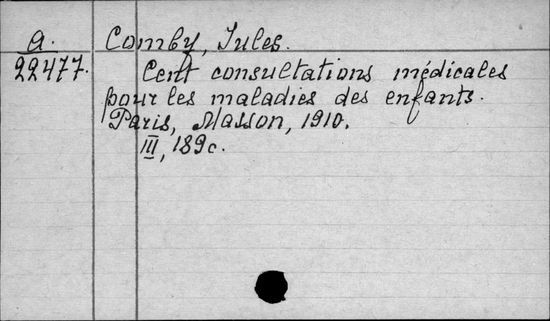 a. Comby, Jules.
22477. Cent consultations médicales
pour les maladies des enfants.
Paris, Masson, 1910.
III, 189c.